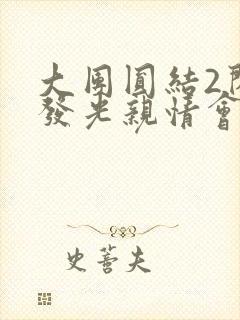 大團圓結2
發光親情會
史蒈夫